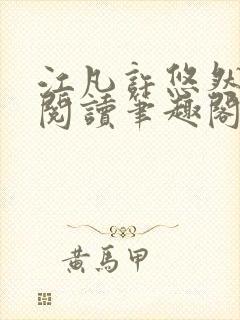 江凡許悠然
閱讀筆趣閣
黃馬甲